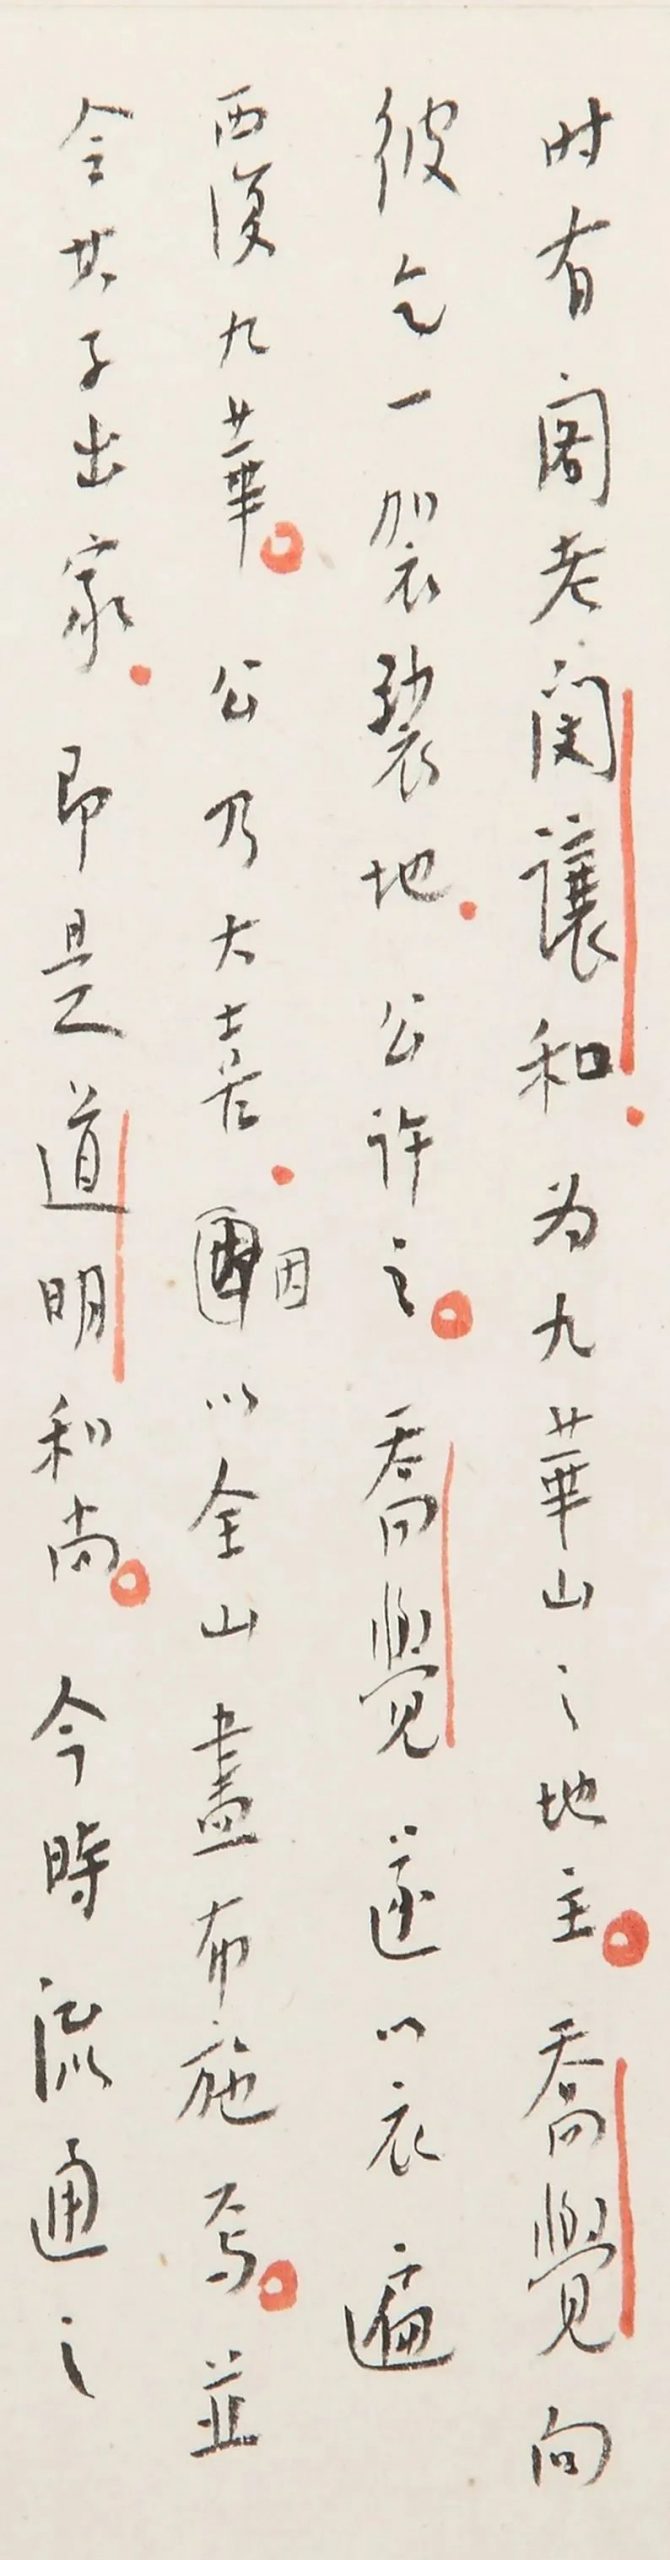 时有阁老闵讓和、为九華山之地主。喬覺向
彼乞一袈裟地、公许之。喬覺遂以衣遍
覆九華。公乃大喜、因以全山盡布施焉。並
令其子出家、即是道明和尚。今時流通之